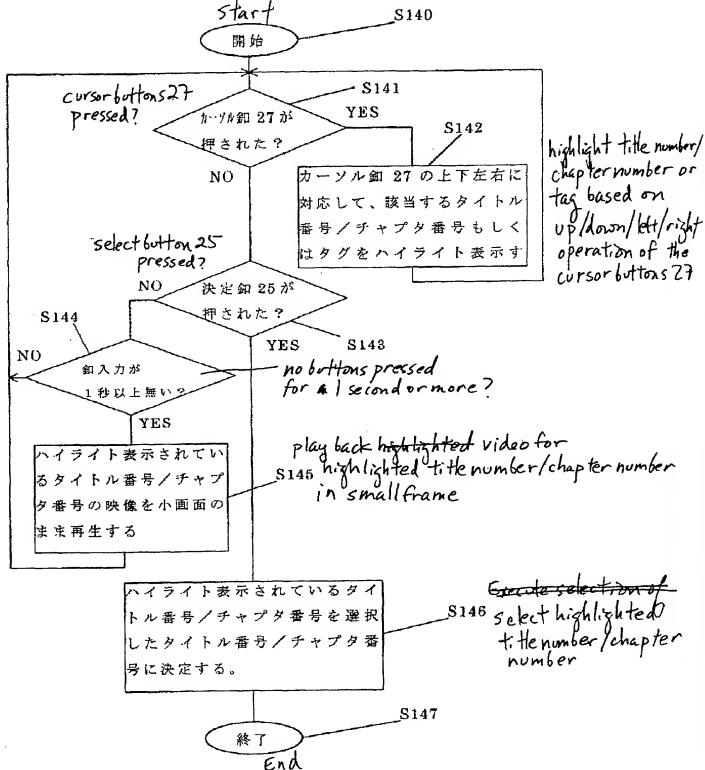 start
S140
開始
cursor buttons 27
pressed?
S141
カーソル釦 27 が
押された?
YES
NO
S142
カーソル釦 27 の上下左右に
対応して、該当するタイトル
番号/チャプタ番号もしく
はタグをハイライト表示す
highlight title number/
chapter number or
tag based on
up/down/left/right
operation of the
cursor buttons 27
select button 25
pressed?
NO
決定釦 25 が
押された?
S143
YES
S144
NO
釦入力が
1秒以上無い?
no buttons pressed
for 1 second or more?
YES
ハイライト表示されてい
るタイトル番号/チャプ
タ番号の映像を小画面の
まま再生する
S145
play back highlighted video for
highlighted title number/chapter number
in small frame
ハイライト表示されているタイ
トル番号/チャプタ番号を選択
したタイトル番号/チャプタ番
号に決定する。
S146
Execute selection of
select highlighted
title number/chapter
number
S147
終了
End